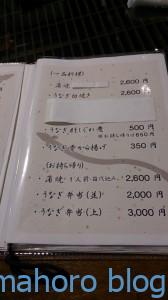 (一品料理)
・蒲焼 2,600円
・うなぎ白焼き 2,600円
・うなぎ肝しぐれ煮 500円
・うなぎ骨から揚げ 350円
(お持ち帰り)
・蒲焼 1人前 2,600円
・うなぎ弁当(並) 2,000円
・うなぎ弁当(上) 3,000円
mahoro blog